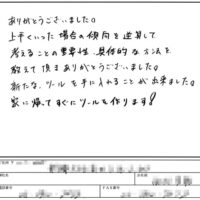 ありがとうございました。
上手くいった場合の傾向を逆算して
考えることの重要性、具体的な方法を
教えて頂きありがとうございました。
新たなツールを手に入れることが出来ました。
家に帰ってすぐにツールを作ります!